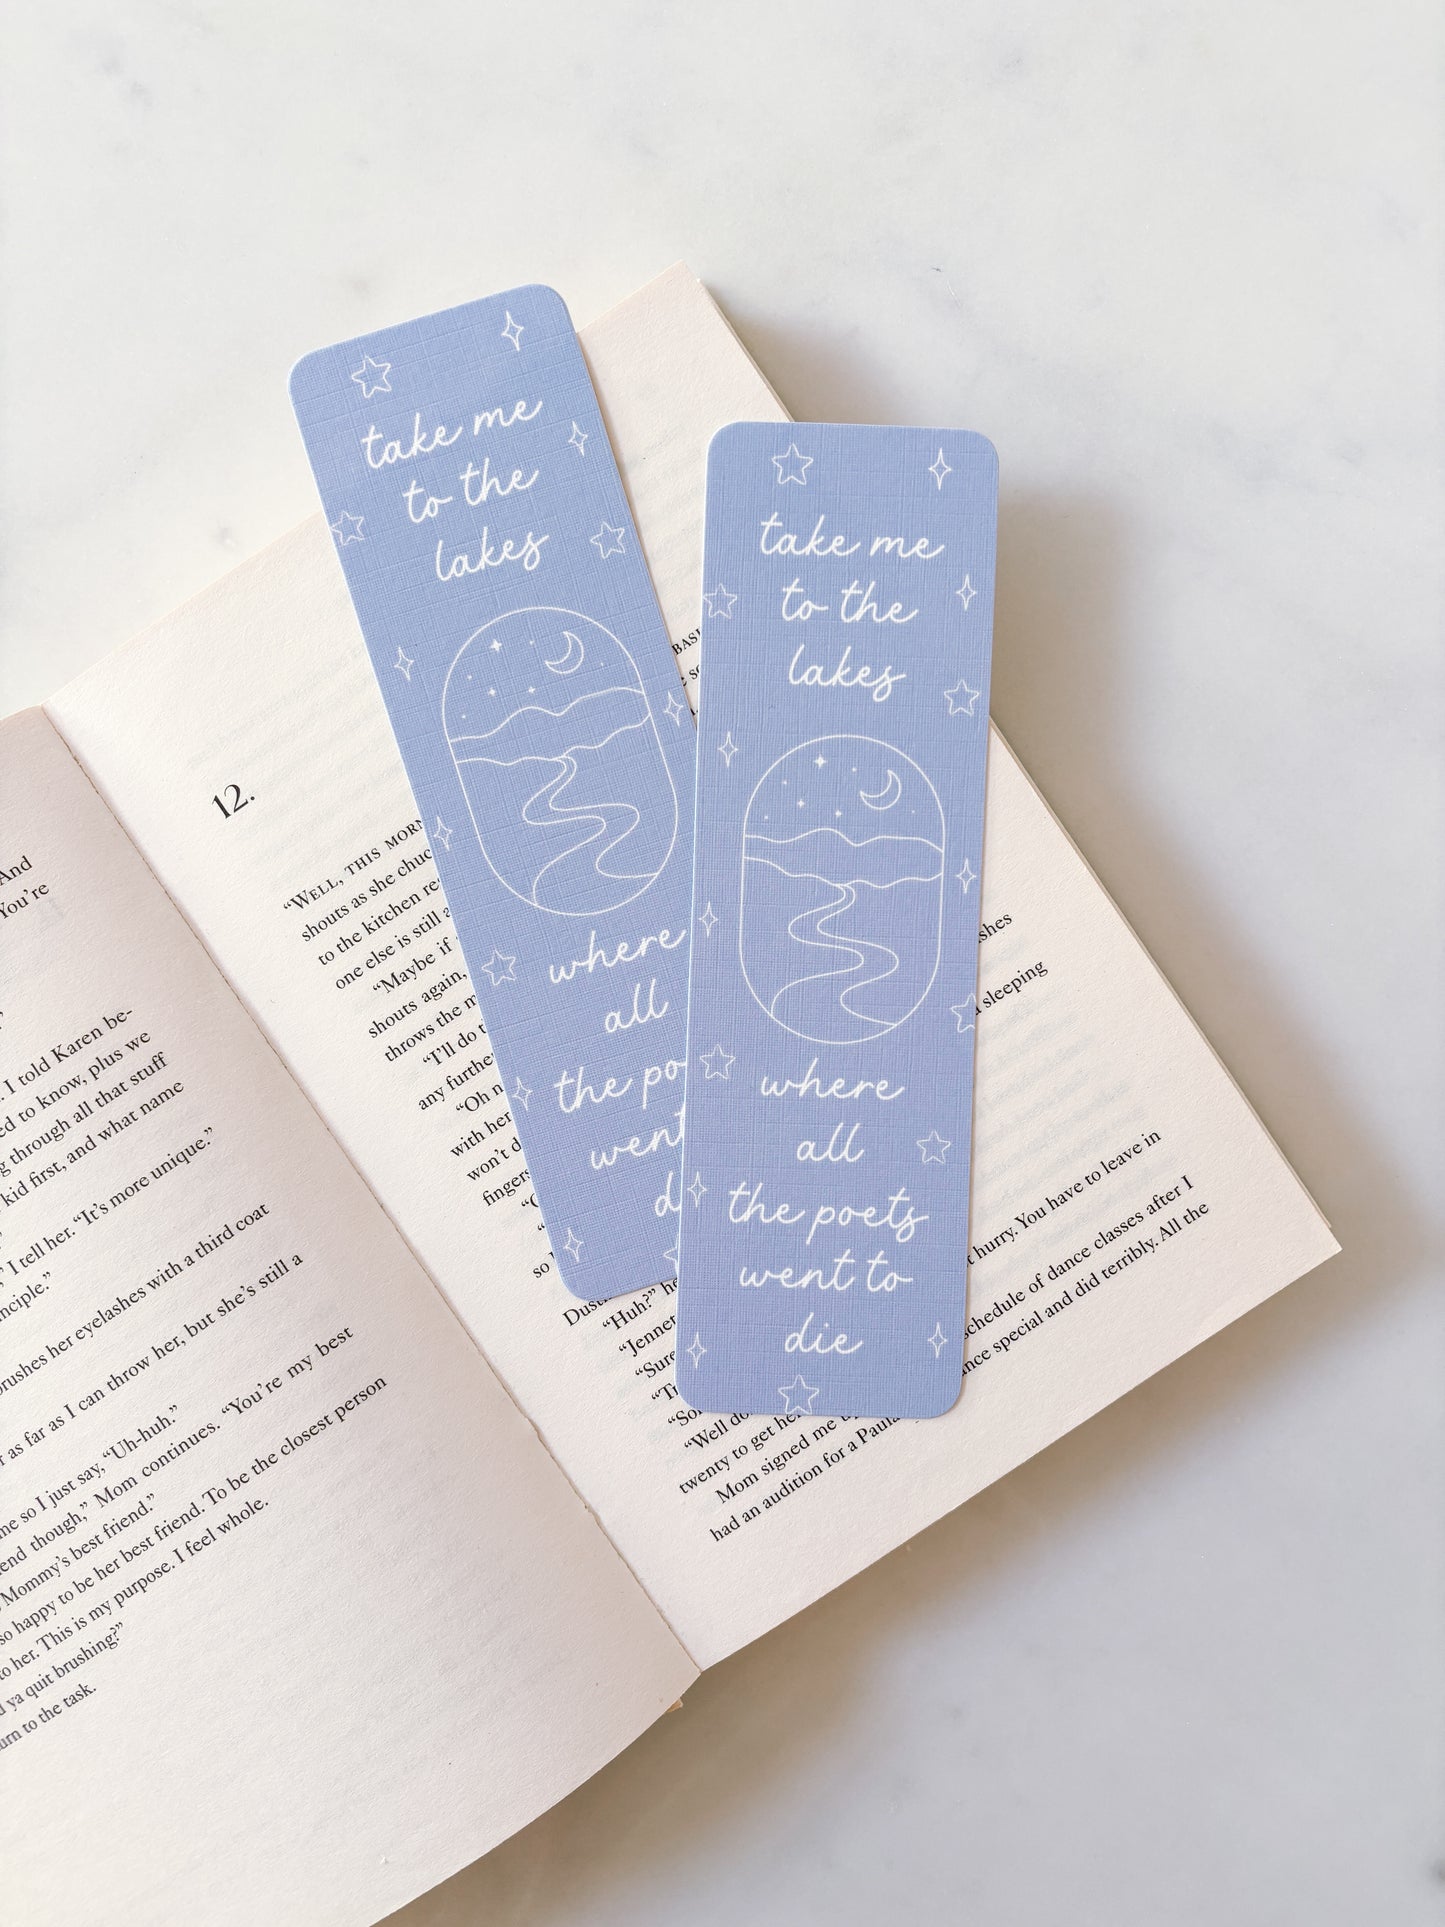 take me
to the
lakes
where
all
the po
went
d
take me
to the
lakes
where
all
the poets
went to
die
And
You're
I told Karen be-
ed to know, plus we
g through all that stuff
kid first, and what name
" I tell her. "It's more unique."
nciple."
brushes her eyelashes with a third coat
r as far as I can throw her, but she's still a
me so I just say, "Uh-huh."
end though," Mom continues. "You're my best
Mommy's best friend."
so happy to be her best friend. To be the closest person
to her. This is my purpose. I feel whole.
d ya quit brushing?"
urn to the task.
12.
"WELL, THIS MORN
shouts as she chuc
to the kitchen re
one else is still a
"Maybe if
shouts again,
throws the m
"I'll do t
any furthe
"Oh n
with her
won't d
fingers
so I
Dust
"Huh?" he
"Jennet
"Sure
"Tr
"Sor
"Well do
twenty to get her
Mom signed me u
had an audition for a Paula
BASI
shes
sleeping
t hurry. You have to leave in
schedule of dance classes after I
nce special and did terribly. All the